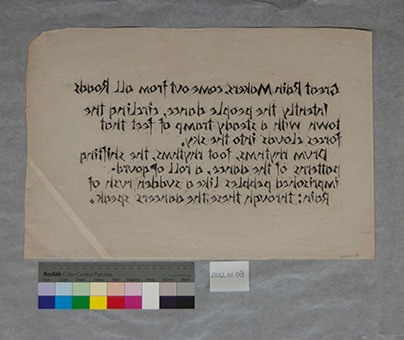 Great Rain Makers, come out from all Roads
Intently the people dance, circling the
town with a steady tramp of feet that
forces clouds into the sky.
Drum rhythms, foot rhythms, the shifting
patterns of the dance, a roll of gourd-
imprisoned pebbles like a sudden rush of
Rain: through these the dancers speak.
Kodak Color Control Patches
2012.01.08